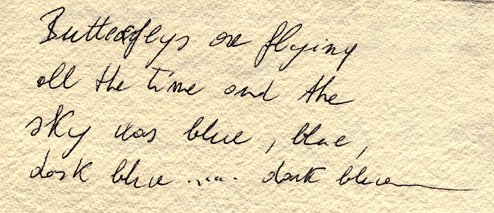 Butterflys are flying
all the time and the
sky was blue, blue,
dark blue ..... dark blue